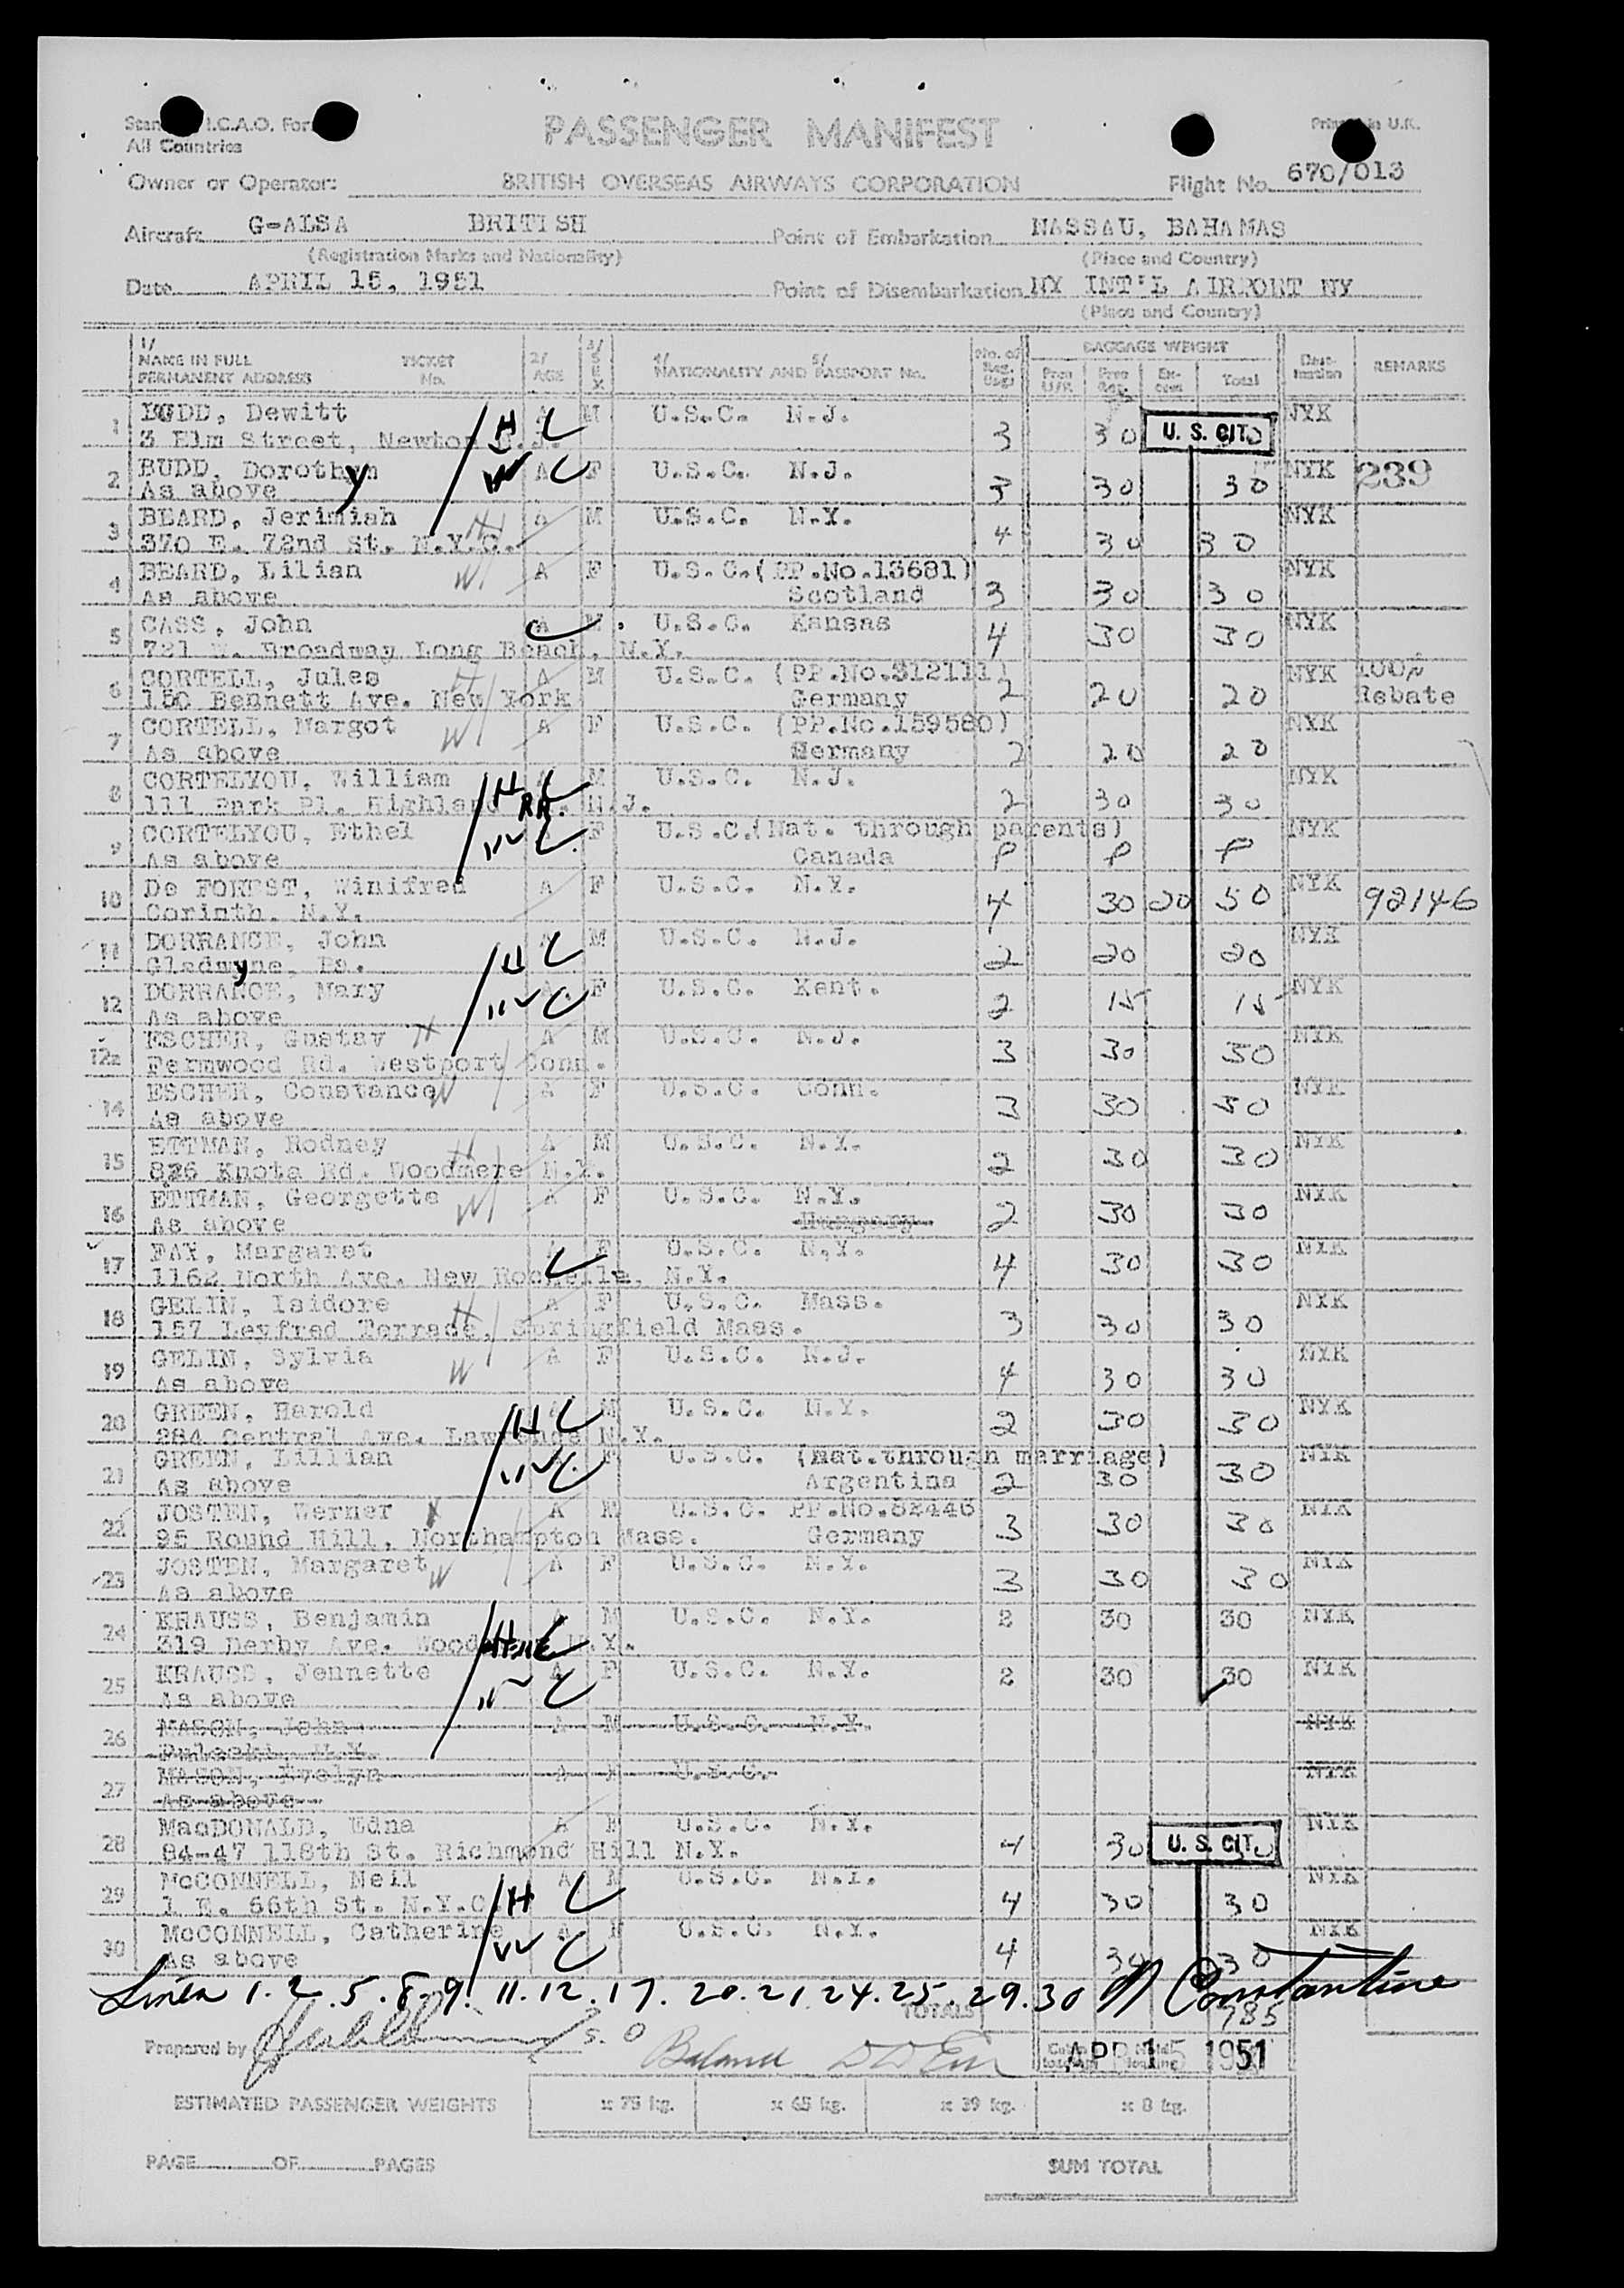 PASSENGER MANIFEST
I.C.A.O. For
All Countries
in U.K.
Owner or Operator: BRITISH OVERSEAS AIRWAYS CORPORATION Flight No. 670/013
Aircraft G-ALSA BRITISH Point of Embarkation NASSAU, BAHAMAS
(Registration Marks and Nationality) (Place and Country)
Date APRIL 15, 1951 Point of Disembarkation NY INT'L AIRPORT NY
(Place and Country)
1/ NAME IN FULL PERMANENT ADDRESS TICKET No. 2/ AGE 3/ SEX 4/ NATIONALITY AND 5/ PASSPORT No. No. of BAGGAGE WEIGHT Total Dest-ination REMARKS
1 BUDD, Dewitt H C A M U.S.C. N.J. NYK
3 Elm Street, Newton 3 30 U. S. CIT.
2 BUDD, Dorothy W A C F U.S.C. N.J. NYK 239
As above 3 30 30
3 BEARD, Jerimiah H A M U.S.C. N.Y. NYK
370 E. 72nd St. N.Y.C. 4 30 30
4 BEARD, Lilian W A F U.S.C. (PP.No.13681) NYK
As above Scotland 3 30 30
5 CASS, John A C M U.S.C. Kansas NYK
Broadway Long Beach, N.Y. 4 30 30
6 CORTELL, Jules H A M U.S.C. (PP.No.312111) NYK 100%
150 Bennett Ave. New York Germany 2 20 20 Rebate
7 CORTELL, Margot W A F U.S.C. (PP.No.159580) NYK
As above Germany 2 20 20
8 CORTELYOU, William H C M U.S.C. N.J. NYK
111 Park Pl. Highland N.J. 2 30 30
9 CORTELYOU, Ethel W C F U.S.C. (Nat. through parents) NYK
As above Canada P P P
10 De FOREST, Winifred A F U.S.C. N.Y. NYK
Corinth. N.Y. 4 30 20 50 92146
11 DORRANCE, John H C A M U.S.C. N.J. NYK
Gladwyne, Pa. 2 20 20
12 DORRANCE, Mary W C F U.S.C. Kent. NYK
As above 2 15 15
12a ESCHER, Gustav H A M U.S.C. N.J. NYK
Fermwood Rd. Westport Conn. 3 30 30
14 ESCHER, Constance W A F U.S.C. Conn. NYK
As above 3 30 30
15 ETTMAN, Rodney H A M U.S.C. N.Y. NYK
826 Knota Rd. Woodmere N.Y. 2 30 30
16 ETTMAN, Georgette W A F U.S.C. N.Y. NYK
As above Hungary 2 30 30
17 FAY, Margaret C F U.S.C. N.Y. NYK
1162 North Ave. New Rochelle, N.Y. 4 30 30
18 GELIN, Isidore H A F U.S.C. Mass. NYK
157 Leyfred Terrace, Springfield Mass. 3 30 30
19 GELIN, Sylvia W A F U.S.C. N.J. NYK
As above 4 30 30
20 GREEN, Harold H C M U.S.C. N.Y. NYK
284 Central Ave. Lawrence N.Y. 2 30 30
21 GREEN, Lillian W C F U.S.C. (Nat.through marriage) NYK
As above Argentina 2 30 30
22 JOSTEN, Werner A M U.S.C. PP.No.82446 NYK
95 Round Hill, Northampton Mass. Germany 3 30 30
23 JOSTEN, Margaret W A F U.S.C. N.Y. NYK
As above 3 30 30
24 KRAUSS, Benjamin H C M U.S.C. N.Y. 2 30 30 NYK
319 Derby Ave. N.Y.
25 KRAUSS, Jennette W C A F U.S.C. N.Y. 2 30 30 NYK
As above
26 MASON, John A M U.S.C. N.Y. NYK
Pulaski, N.Y.
27 MASON, Evelyn A F U.S.C. NYK
As above
28 MacDONALD, Edna A F U.S.C. N.Y. NYK
84-47 118th St. Richmond Hill N.Y. 4 30 U. S. CIT.
29 McCONNELL, Neil H C A M U.S.C. N.Y. NYK
1 E. 66th St. N.Y.C. 4 30 30
30 McCONNELL, Catherine W C A F U.S.C. N.Y. NYK
As above 4 30 30
Lines 1.2.5.8.9.11.12.17.20.21.24.25.29.30 N Constantine
TOTALS 785
Prepared by S.O
APR 15 1951
ESTIMATED PASSENGER WEIGHTS x 75 kg. x 65 kg. x 39 kg. x 8 kg.
PAGE OF PAGES SUM TOTAL